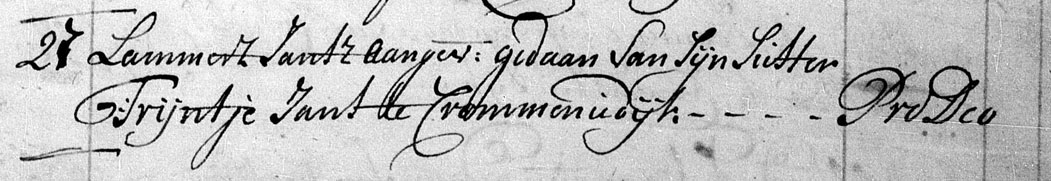 27 Lammert Jantz aangev: gedaan van sijn suster
Trijntje Jans te Crommeniedijk - - - - Pro Deo